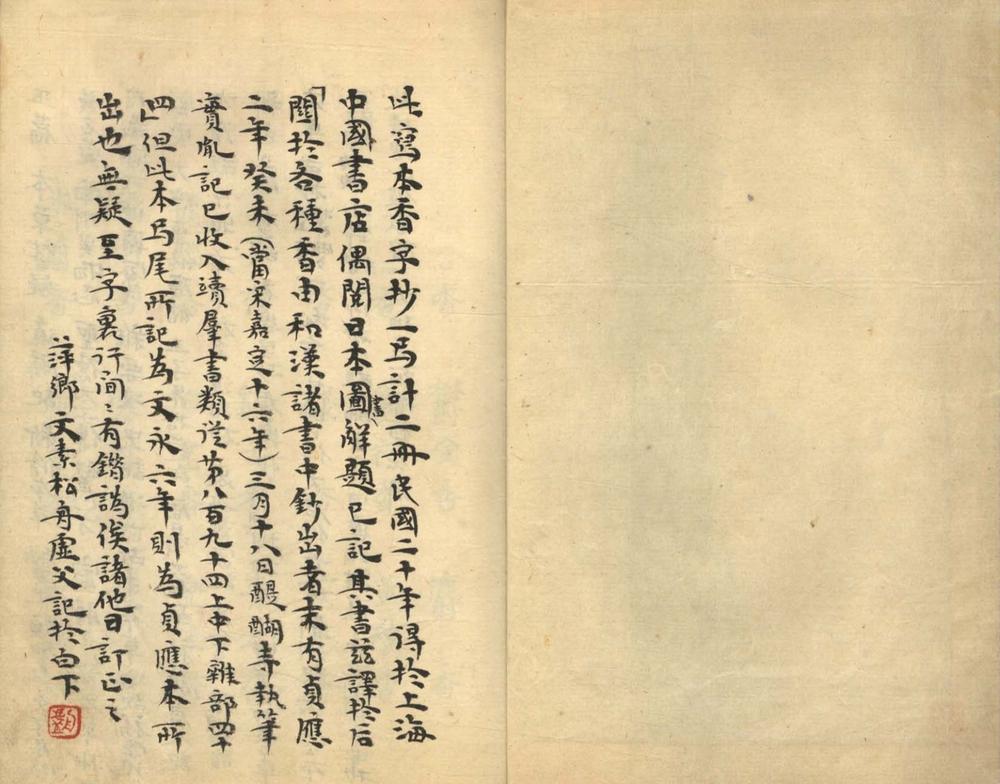 此寫本香字抄一㢧計二冊民國二十年得於上海
中國書店偶閱日本圖書解題已記其書茲譯於后
「關於各種香由和漢諸書中鈔出者末有貞應
二年癸未(當宋嘉定十六年)三月十八日醍醐寺執筆
實胤記已收入續羣書類從第八百九十四上中下雜部四十
四」但此本㢧尾所記為文永六年則為貞應本所
出也無疑至字裏行間〻有錯譌俟諸他日訂正之
萍鄉文素松舟虛父記於白下